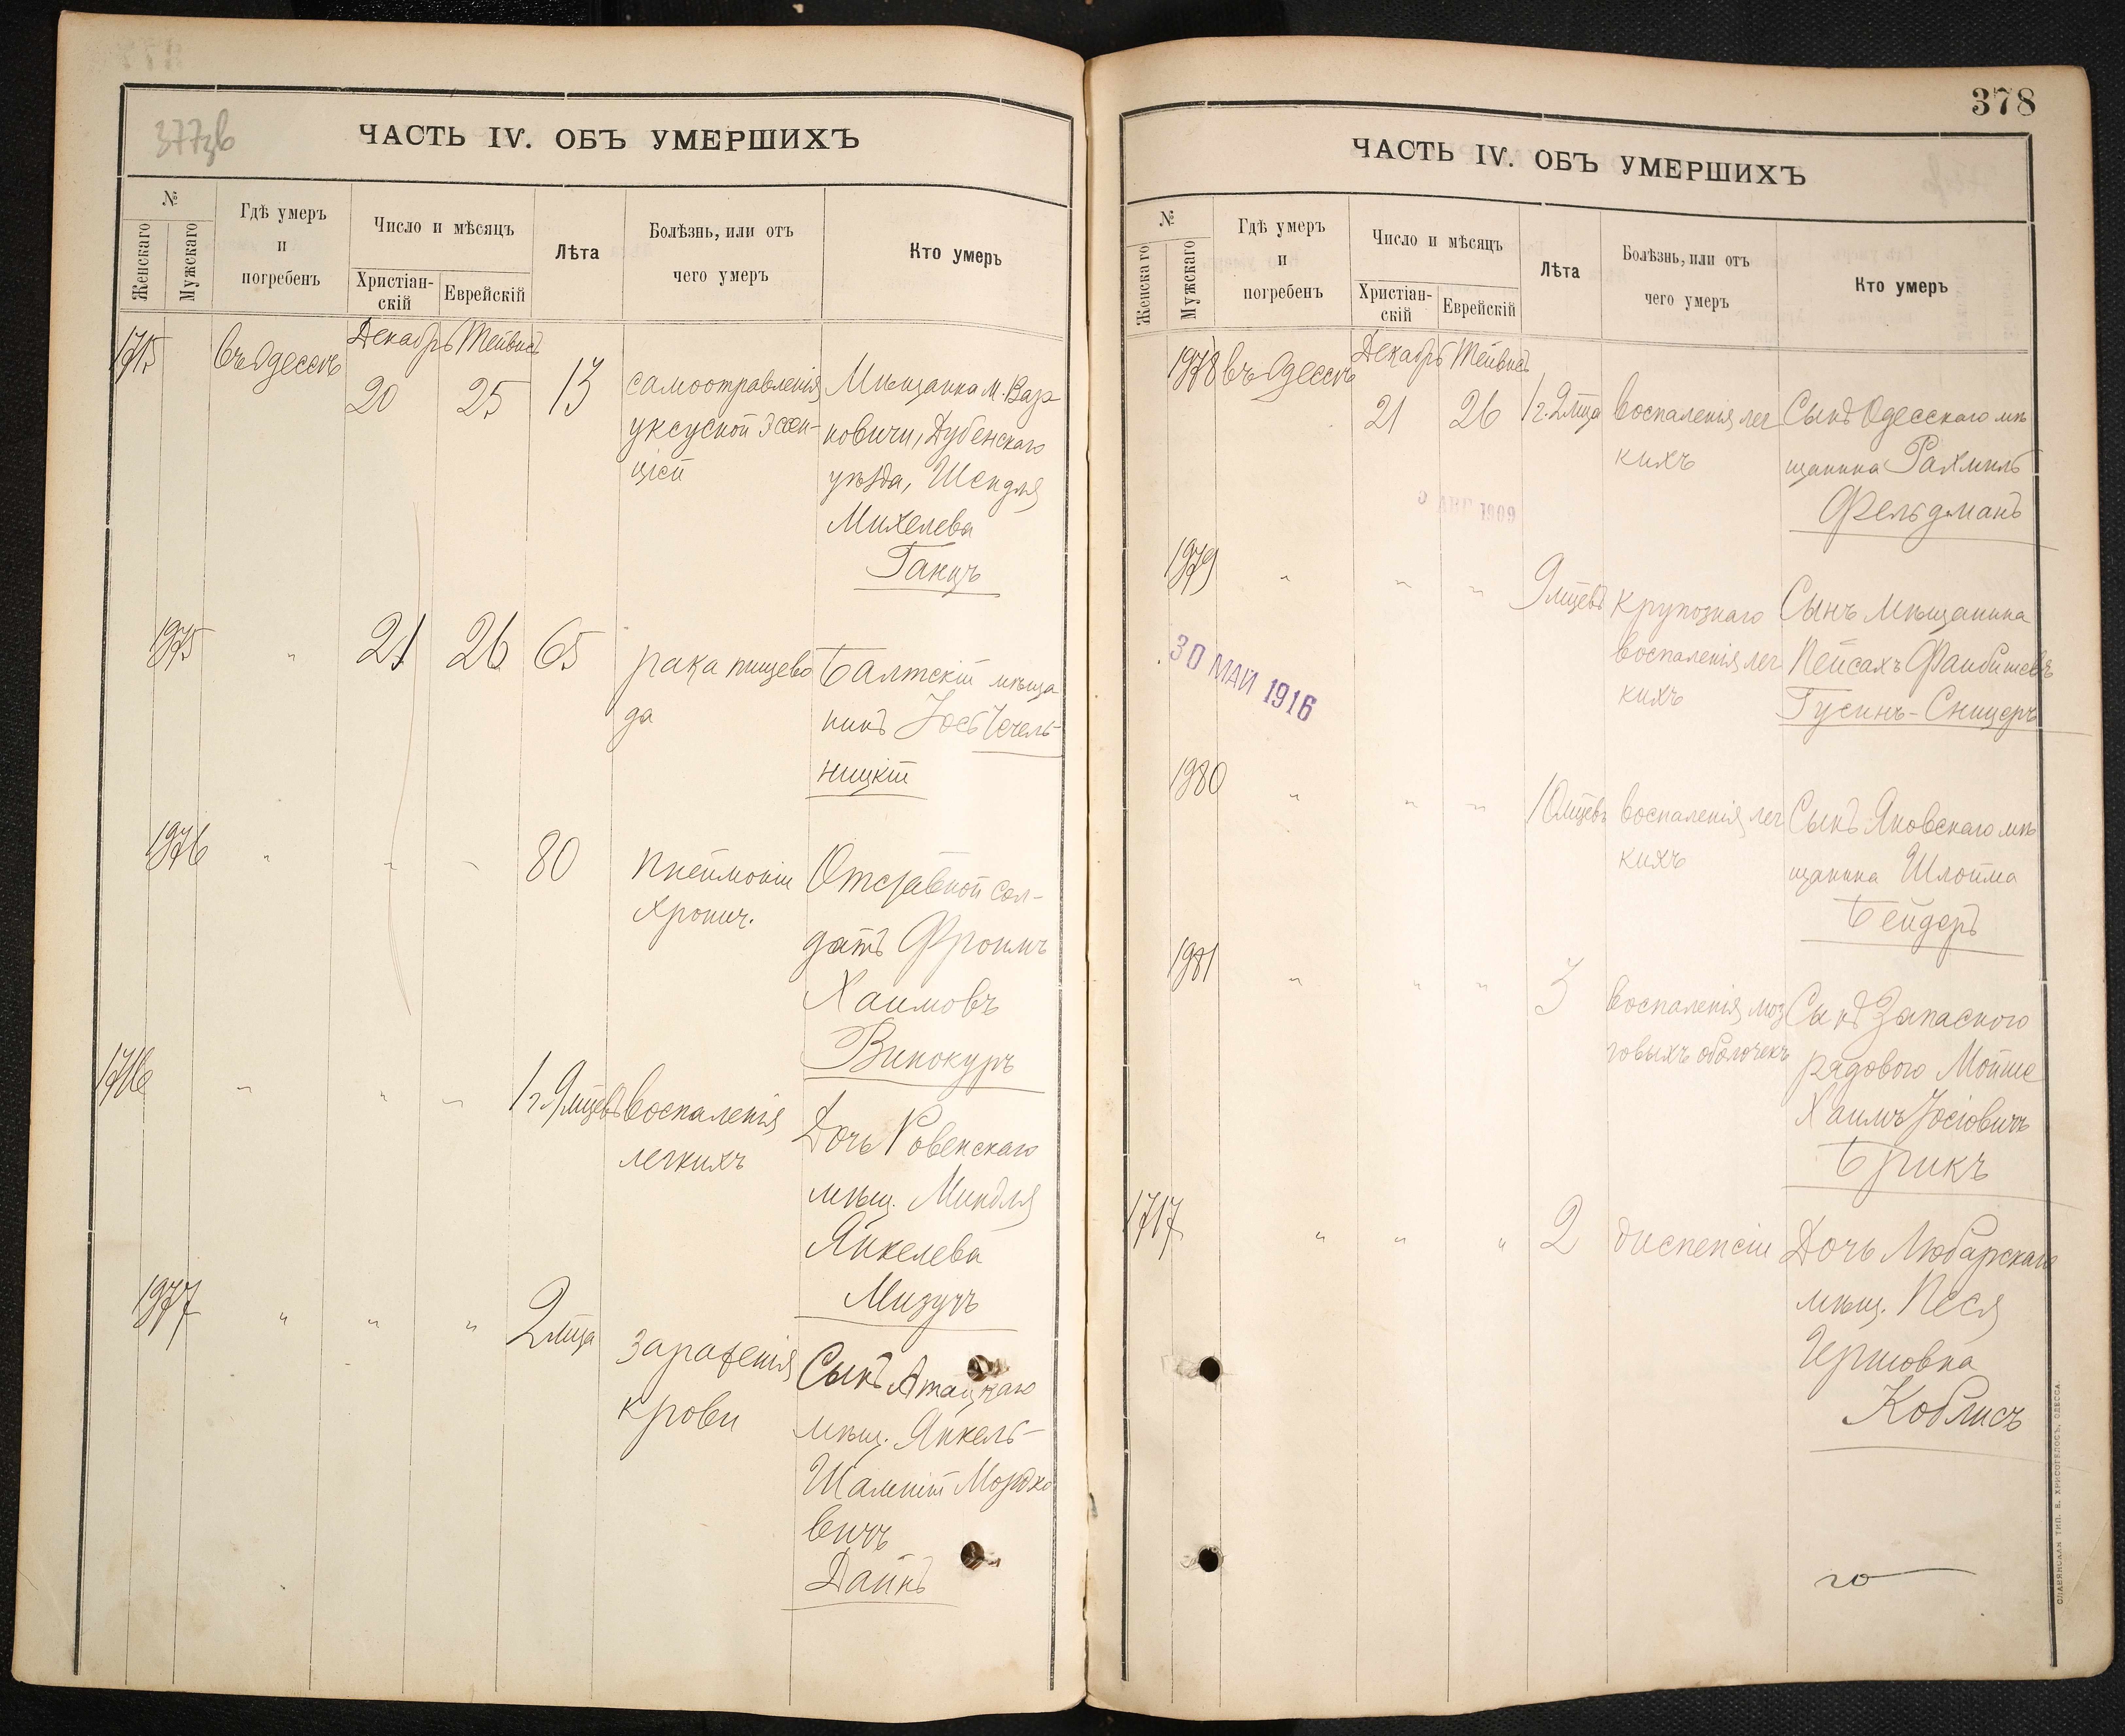 377зв
ЧАСТЬ IV. ОБЪ УМЕРШИХЪ
№
Женскаго
Мужскаго
Гдѣ умеръ
и
погребенъ
Число и мѣсяцъ
Христіан-
скій
Еврейскій
Лѣта
Болѣзнь, или отъ
чего умеръ
Кто умеръ
1715
въ Одессѣ
Декабрь Тейвисъ
20 25 13
самоотравленія
уксусной эссен-
ціей
Мѣщанка м. Вар
ковичи, Дубенскаго
уѣзда, Шендля
Михелева
Ганцъ
1975 " 21 26 65
рака пищево
да
Балтскій мѣща
нинъ Іось Чечель-
ницкій
1976 " " " 80
пнеймоніи
хронич.
Отставной сол-
датъ Фроимъ
Хаимовъ
Винокуръ
1716 " " " 1 г. 9 мцевъ
воспаленія
легкихъ
Дочь Ровенскаго
мѣщ. Миндля
Янкелева
Мизучъ
1977 " " " 2 мца
зараженія
крови
Сынъ Атацкаго
мѣщ. Янкель-
Мордко
вичъ
Дайнъ
378
ЧАСТЬ IV. ОБЪ УМЕРШИХЪ
№
Женскаго
Мужскаго
Гдѣ умеръ
и
погребенъ
Число и мѣсяцъ
Христіан-
скій
Еврейскій
Лѣта
Болѣзнь, или отъ
чего умеръ
Кто умеръ
1978 въ Одессѣ
Декабрь Тейвисъ
21 26 1 г. 2 мца
воспаленія лег
кихъ
Сынъ Одесскаго мѣ
щанина Рахмиль
Фельдманъ
АВГ 1909
1979 " " " 9 мцевъ
крупознаго
воспаленія лег
кихъ
Сынъ мѣщанина
Пейсахъ Фаибишевъ
Гусинъ-Сницеръ
30 МАЙ 1916
1980 " " " 10 мцевъ
воспаленія лег
кихъ
Сынъ Яновскаго мѣ
щанина Шлойма
Бейдеръ
1981 " " " 3
воспаленія моз
говыхъ оболочекъ
Сынъ Запаснаго
рядового Мойше
Хаимъ Іосіовичъ
Брикъ
1717 " " " 2
диспепсіи
Дочь Любарскаго
мѣщ. Песя
Гершовна
Коблисъ
СЛАВЯНСКАЯ ТИП. Е. ХРИСОГЕЛОСЪ, ОДЕССА.